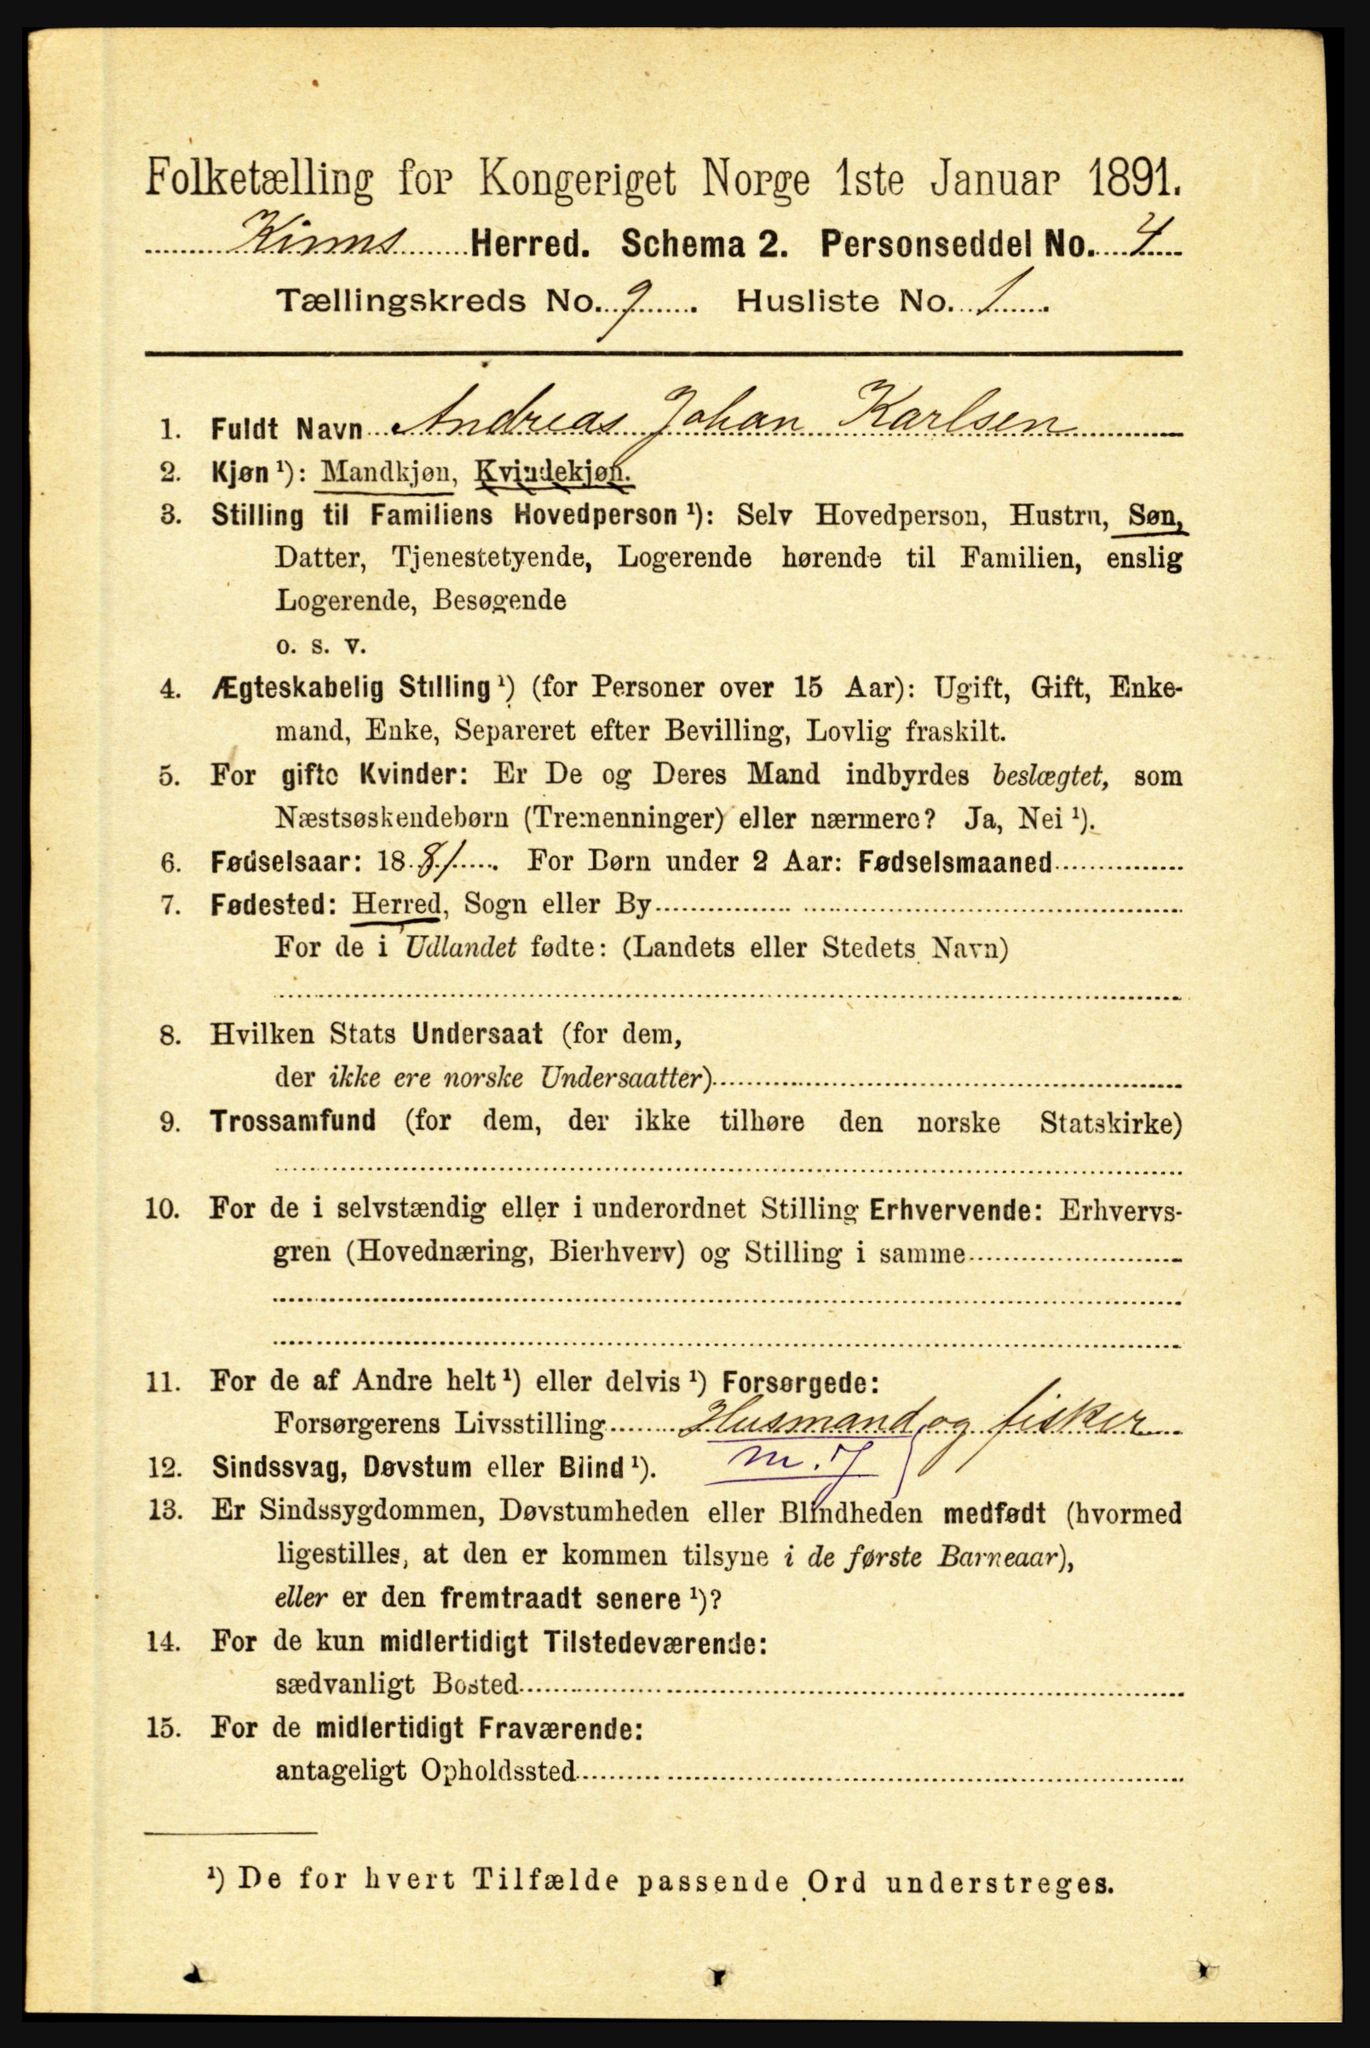 Folketælling for Kongeriget Norge 1ste Januar 1891.
Kinns Herred. Schema 2. Personseddel No. 4
Tællingskreds No. 9. Husliste No. 1.
1. Fuldt Navn Andreas Johan Karlsen
2. Kjøn ¹): Mandkjøn, Kvindekjøn.
3. Stilling til Familiens Hovedperson ¹): Selv Hovedperson, Hustru, Søn,
Datter, Tjenestetyende, Logerende hørende til Familien, enslig
Logerende, Besøgende
o. s. v.
4. Ægteskabelig Stilling ¹) (for Personer over 15 Aar): Ugift, Gift, Enke-
mand, Enke, Separeret efter Bevilling, Lovlig fraskilt.
5. For gifte Kvinder: Er De og Deres Mand indbyrdes beslægtet, som
Næstsøskendebørn (Tremenninger) eller nærmere? Ja, Nei ¹).
6. Fødselsaar: 1881. For Børn under 2 Aar: Fødselsmaaned
7. Fødested: Herred, Sogn eller By
For de i Udlandet fødte: (Landets eller Stedets Navn)
8. Hvilken Stats Undersaat (for dem,
der ikke ere norske Undersaatter)
9. Trossamfund (for dem, der ikke tilhøre den norske Statskirke)
10. For de i selvstændig eller i underordnet Stilling Erhvervende: Erhvervs-
gren (Hovednæring, Bierhverv) og Stilling i samme
11. For de af Andre helt ¹) eller delvis ¹) Forsørgede:
Forsørgerens Livsstilling Husmand og fisker
12. Sindssvag, Døvstum eller Blind ¹). m. J
13. Er Sindssygdommen, Døvstumheden eller Blindheden medfødt (hvormed
ligestilles, at den er kommen tilsyne i de første Barneaar),
eller er den fremtraadt senere ¹)?
14. For de kun midlertidigt Tilstedeværende:
sædvanligt Bosted
15. For de midlertidigt Fraværende:
antageligt Opholdssted
¹) De for hvert Tilfælde passende Ord understreges.